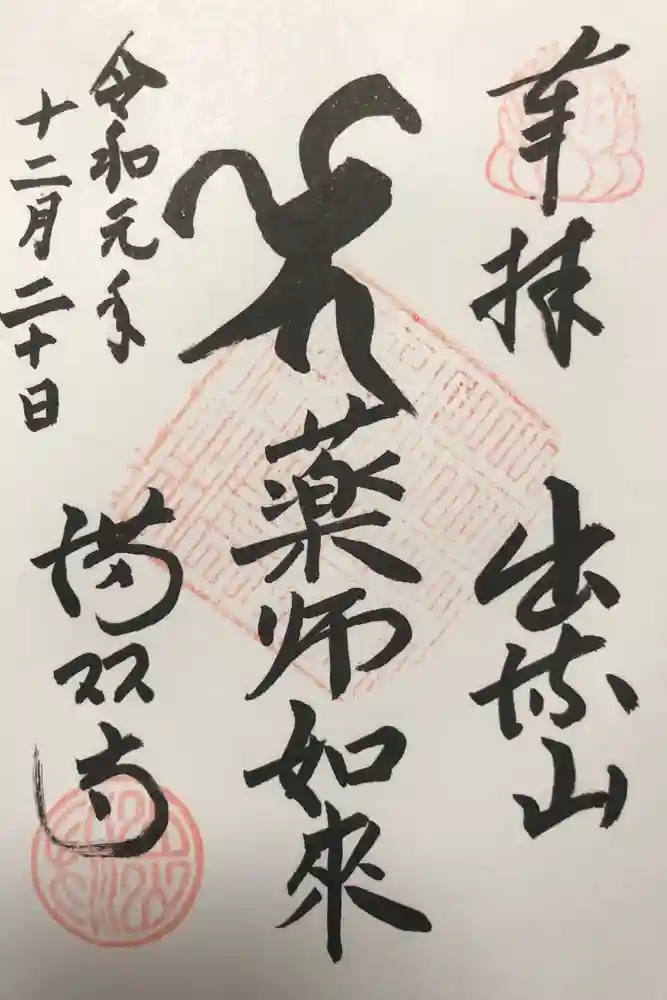 奉拝　出流山
薬師如來
令和元年
十二月二十日
満願寺